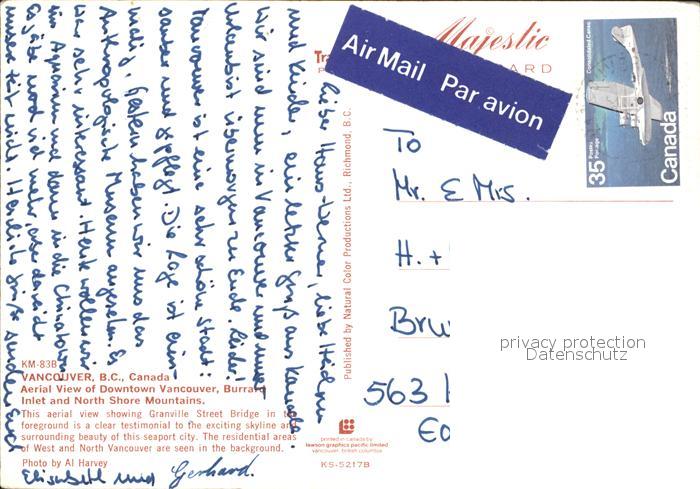 Majestic
Air Mail Par avion
Consolidated Canso
35
Postes
Postage
Canada
To
Mr. & Mrs.
H. +
563
privacy protection
Datenschutz
Liebe Hans-Werner, liebe Heidrun
und Kinder, ein letzter Gruß aus Kanada.
Wir sind nun in Vancouver und unser
Urlaub ist übermorgen zu Ende. Leider!
Vancouver ist eine sehr schöne Stadt:
sauber und gepflegt. Die Lage ist ein-
malig. Gestern haben wir uns das
Anthropologische Museum angesehen. Es
war sehr interessant. Heute wollen wir
ins Aquarium und dann in die Chinatown.
Es gäbe noch viel mehr, aber die Zeit
Herzliche Grüße senden Euch
Elisabeth und Gerhard.
Published by Natural Color Productions Ltd., Richmond, B.C.
KM-83B
VANCOUVER, B.C., Canada
Aerial View of Downtown Vancouver, Burrard
Inlet and North Shore Mountains.
This aerial view showing Granville Street Bridge in the
foreground is a clear testimonial to the exciting skyline and
surrounding beauty of this seaport city. The residential areas
of West and North Vancouver are seen in the background.
Photo by Al Harvey
printed in canada by
lawson graphics pacific limited
vancouver, british columbia
KS-5217B